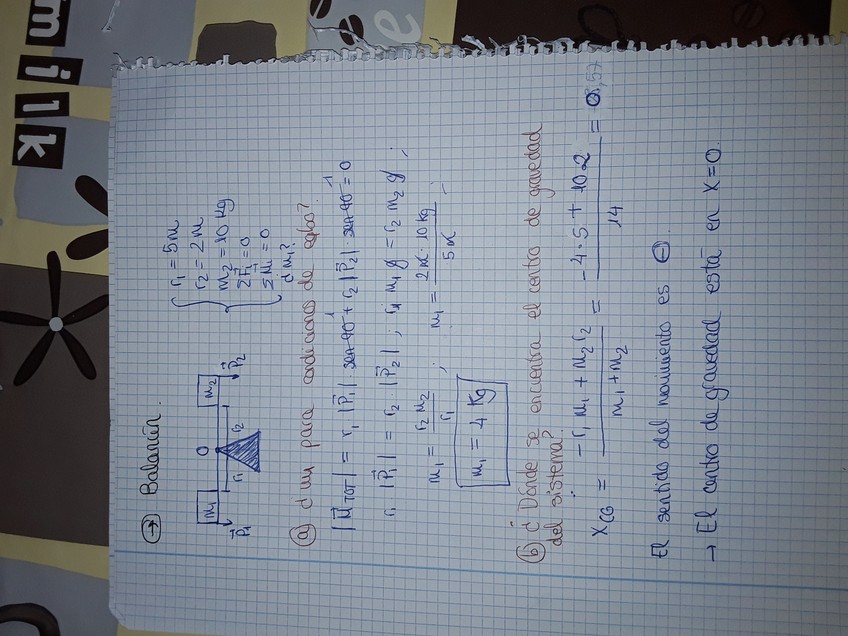 milk
→ Balancín.
m1 O m2
r1 r2
P⃗1 P⃗2
r1 = 5m
r2 = 2m
m2 = 10 Kg
ΣF⃗i = 0
ΣM⃗i = 0
¿m1?
ⓐ ¿m1 para condiciones de eqbo?
|M⃗TOT| = r1 |P⃗1| · sen 90° + r2 |P⃗2| · sen 90° = 0
r1 |P⃗1| = r2 |P⃗2| ; r1 m1 g = r2 m2 g ;
m1 = r2 m2 / r1 ; m1 = 2m · 10 Kg / 5m ;
m1 = 4 Kg
ⓑ ¿Dónde se encuentra el centro de gravedad
del sistema?
XCG = -r1 m1 + m2 r2 / m1 + m2 = -4·5 + 10·2 / 14 = 0
El sentido del movimiento es ⊖
→ El centro de gravedad está en X=0.